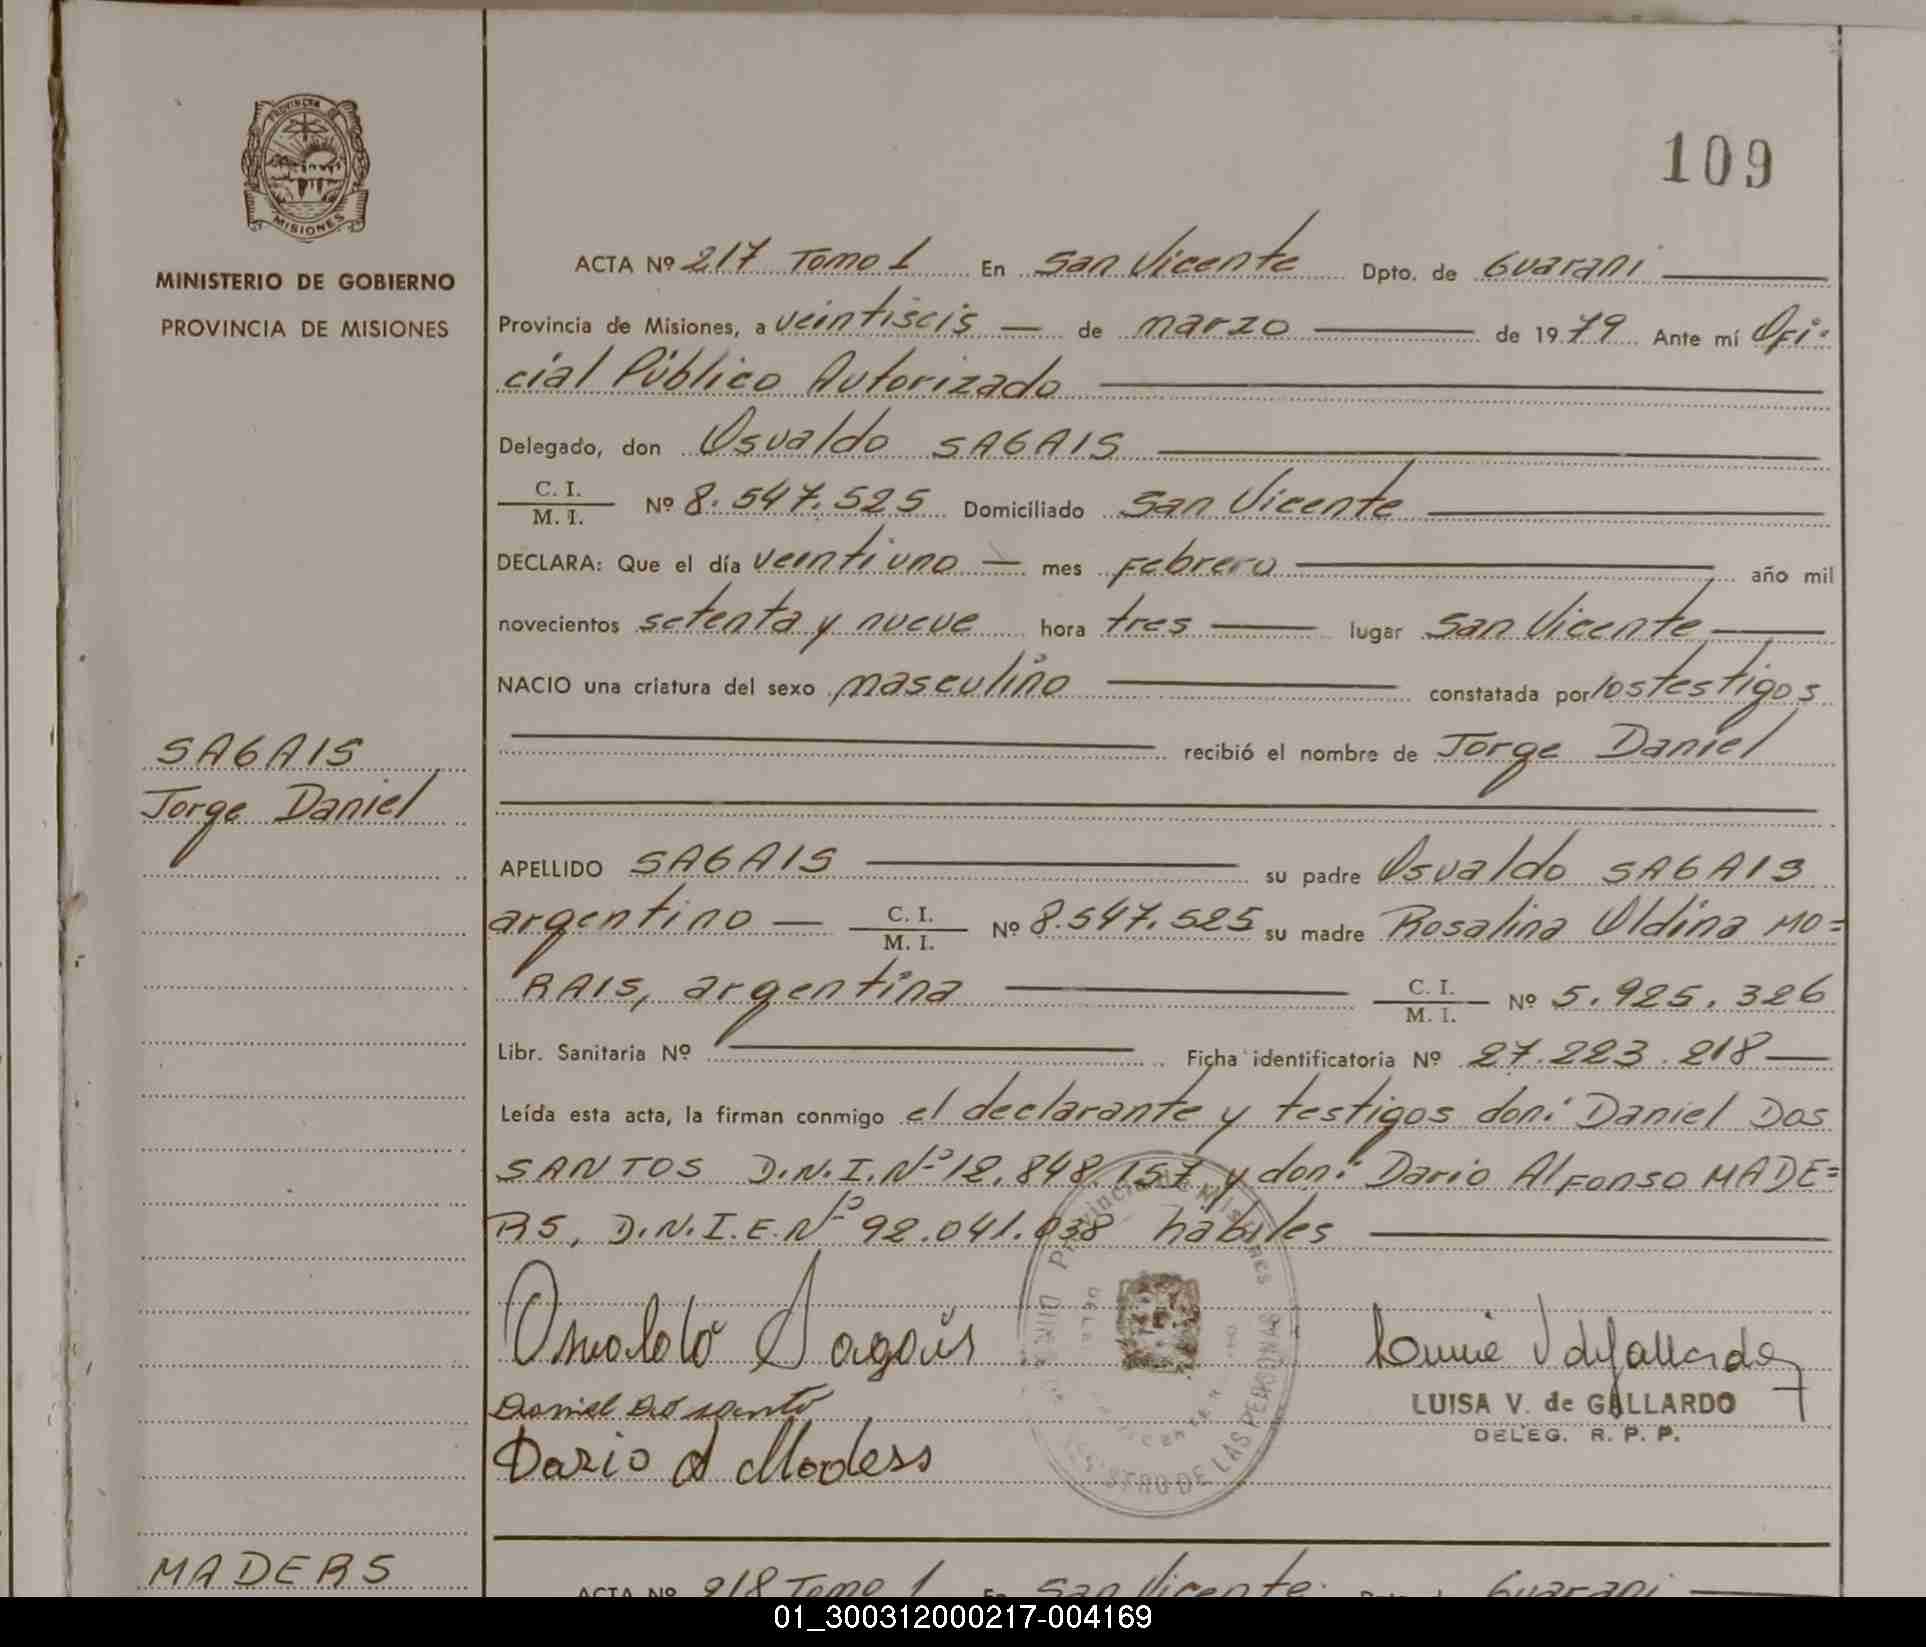 109
PROVINCIA
MISIONES
MINISTERIO DE GOBIERNO
PROVINCIA DE MISIONES
ACTA Nº 217 Tomo 1 En San Vicente Dpto. de Guarani
Provincia de Misiones, a veintiseis de marzo de 1979 Ante mí Ofi-
cial Público Autorizado
Delegado, don Osvaldo SAGAIS
C. I.
M. I. Nº 8.547.525 Domiciliado San Vicente
DECLARA: Que el día veintiuno mes Febrero año mil
novecientos setenta y nueve hora tres lugar San Vicente
NACIO una criatura del sexo masculino constatada por los testigos
recibió el nombre de Jorge Daniel
SAGAIS
Jorge Daniel
APELLIDO SAGAIS su padre Osvaldo SAGAIS
argentino C. I. M. I. Nº 8.547.525 su madre Rosalina Oldina MO=
RAIS, argentina C. I. M. I. Nº 5.925.326
Libr. Sanitaria Nº Ficha identificatoria Nº 27.223.218
Leída esta acta, la firman conmigo el declarante y testigos don: Daniel DOS
SANTOS D.N.I. Nº 12.848.157 y don: Dario Alfonso MADE=
RS, D.N.I.E. Nº 92.041.038 habiles
Osvaldo Sagais
Daniel Dos Santo
Dario A Maders
Provincia de Misiones
DE LAS PERSONAS
LUISA V. de GALLARDO
DELEG. R. P. P.
MADERS
ACTA Nº 218 Tomo 1 En San Vicente Guarani
01_300312000217-004169